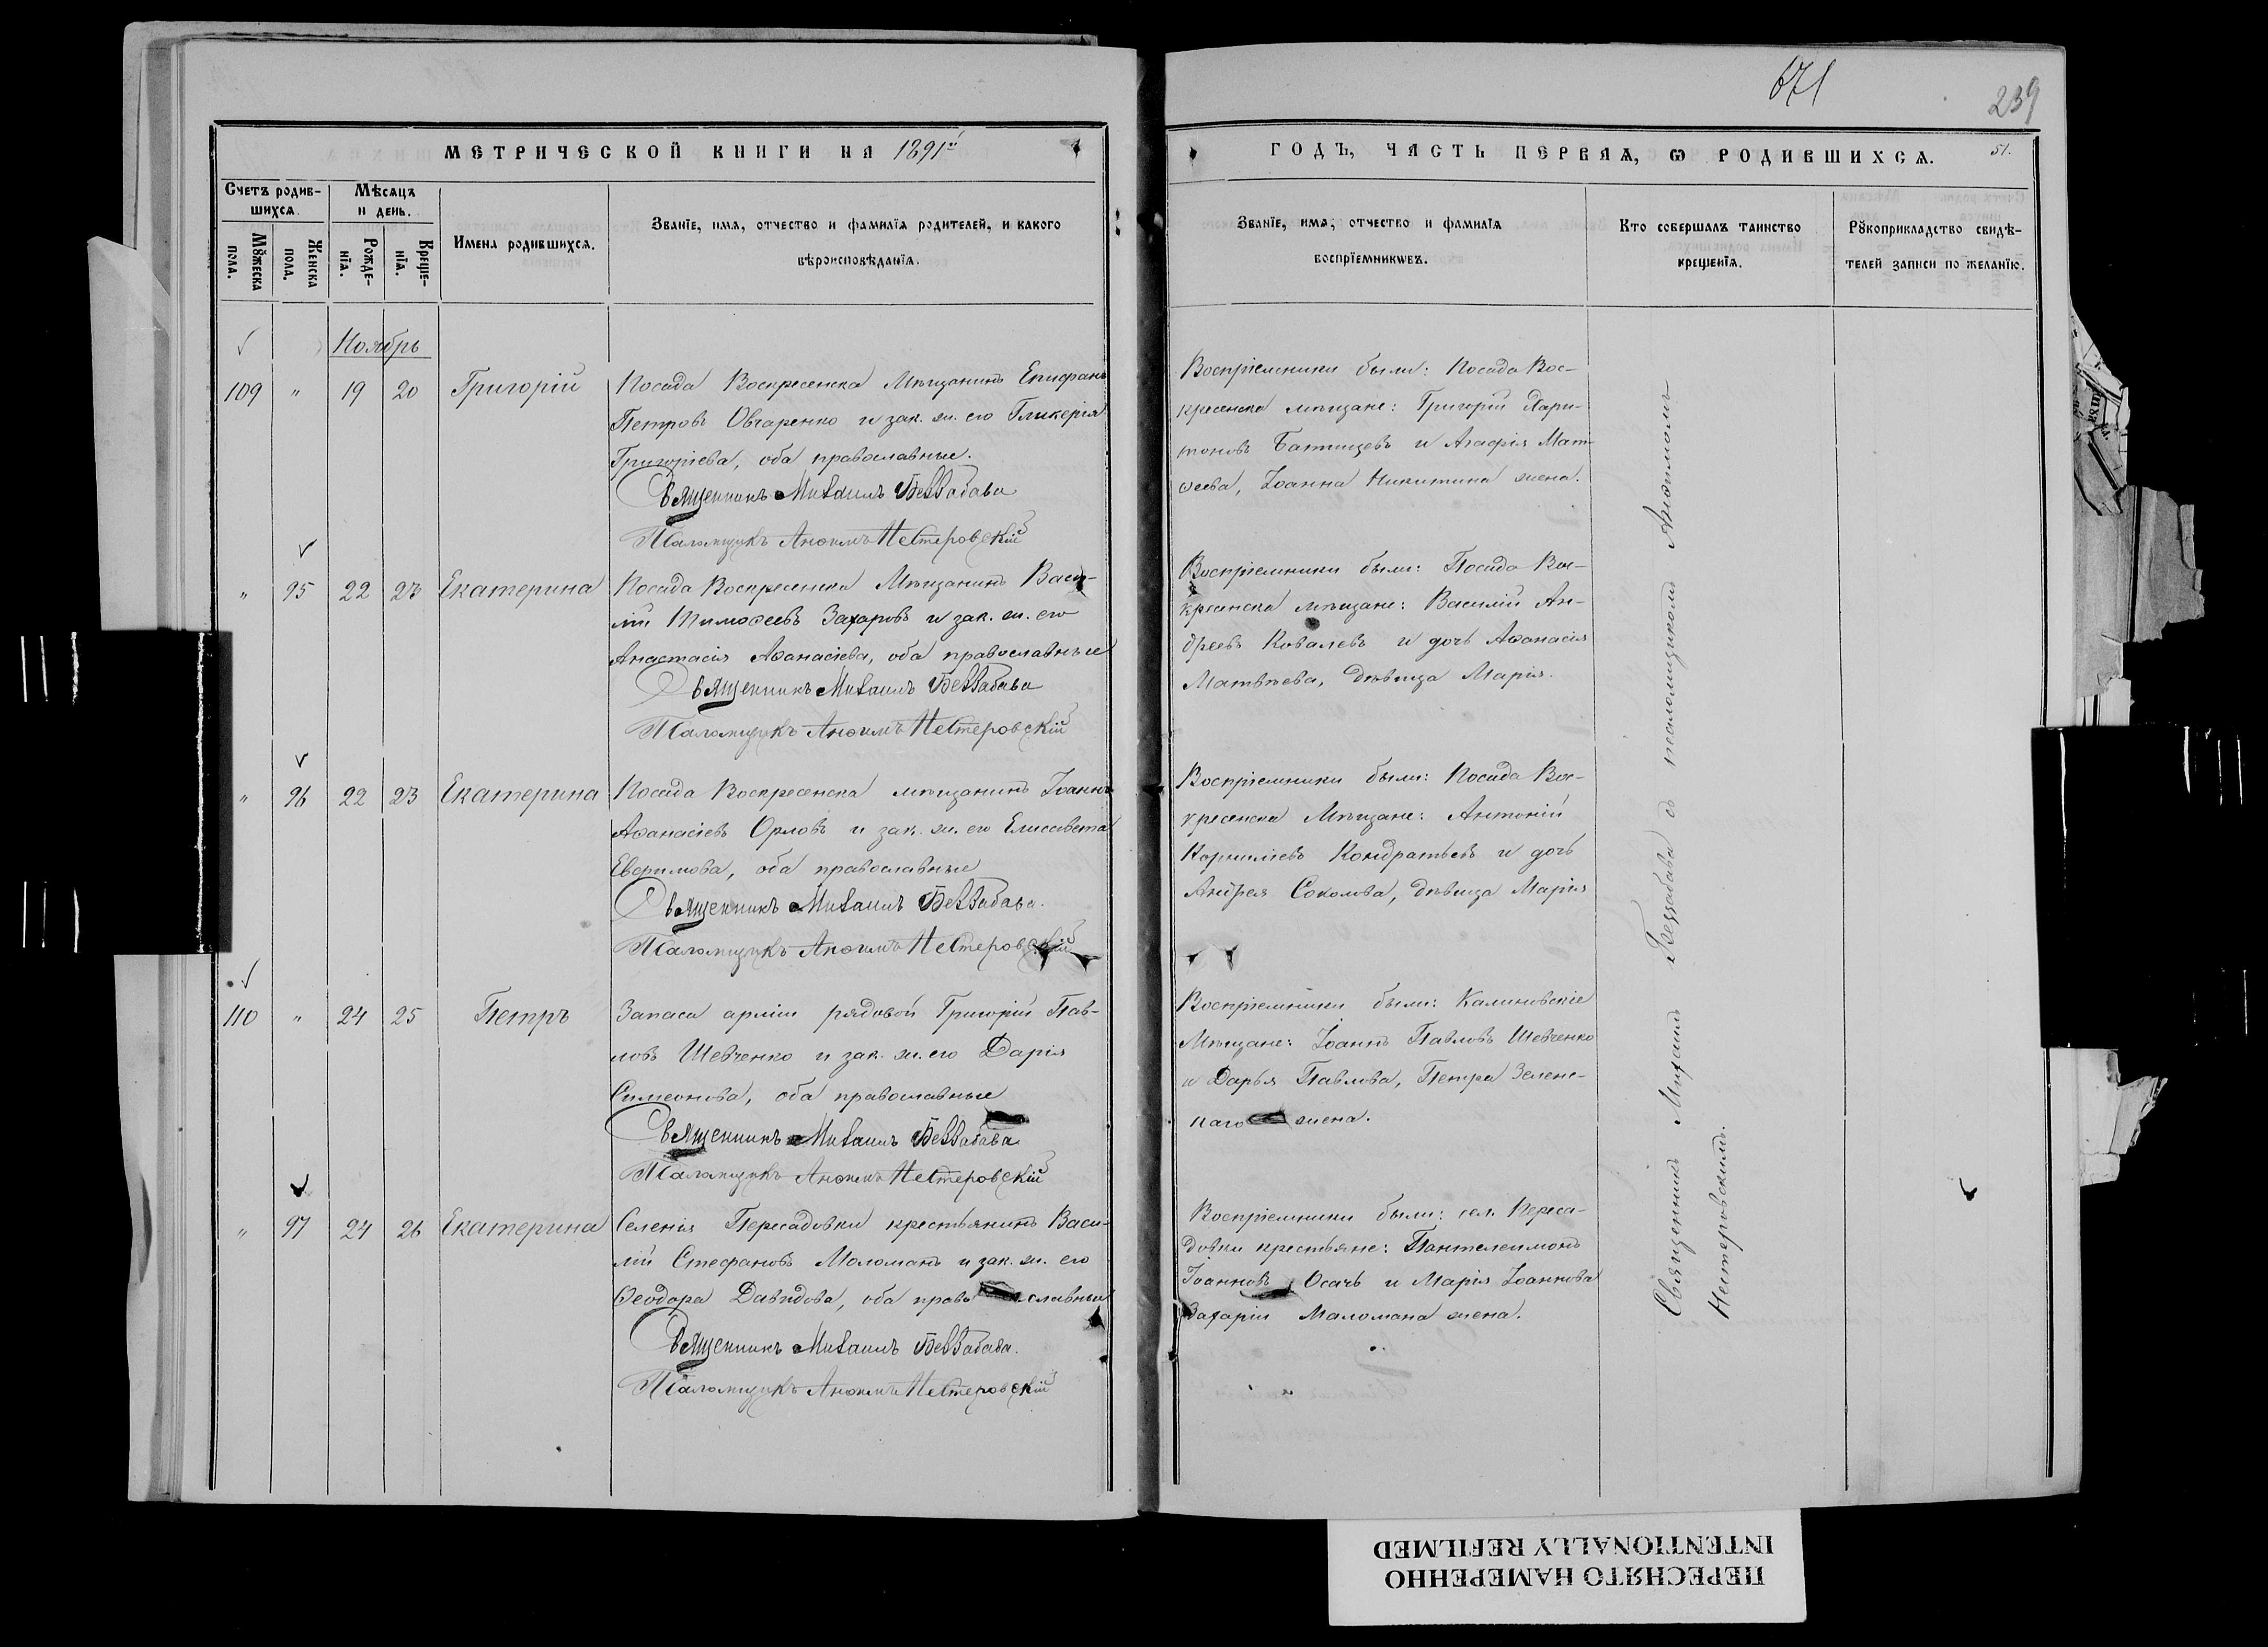 671
239
МЕТРИЧЕСКОЙ КНИГИ НА 1891й
ГОДЪ, ЧАСТЬ ПЕРВАЯ, Ѡ РОДИВШИХСЯ.
51.
Счетъ родив-
шихся.
Мѣсяцъ
и день.
Мꙋжеска
пола.
Женска
пола.
Рожде-
нїя.
Креще-
нїя.
Имена родившихся.
Званїе, имя, отчество и фамилїя родителей, и какого
вѣроисповѣданїя.
Званїе, имя, отчество и фамилїя
воспрїемникѡвъ.
Кто совершалъ таинство
крещенїя.
Рꙋкоприкладство свидѣ-
телей записи по желанїю.
Ноябрь
109 " 19 20 Григорій
Посада Воскресенска Мѣщанинъ Епифанъ
Петровъ Овчаренко и зак. ж. его Гликерія
Григоріева, оба православные.
Священникъ Михаилъ Беззабава
Псаломщикъ Анѳимъ Нестеровскій
Воспріемники были: Посада Вос-
кресенска мѣщане: Григорій Хари-
тоновъ Батищевъ и Агафія Мат-
ѳеева, Іоанна Никитина жена.
" 95 22 23 Екатерина
Посада Воскресенска Мѣщанинъ Васи-
лій Тимоѳеевъ Захаровъ и зак. ж. его
Анастасія Аѳанасіева, оба православные
Священникъ Михаилъ Беззабава
Псаломщикъ Анѳимъ Нестеровскій
Воспріемники были: Посада Вос-
кресенска мѣщане: Василій Ан-
дреевъ Ковалевъ и дочь Аѳанасія
Матвѣева, дѣвица Марія.
" 96 22 23 Екатерина
Посада Воскресенска мѣщанинъ Іоаннъ
Аѳанасіевъ Орловъ и зак. ж. его Елисавета
Евфимова, оба православные
Священникъ Михаилъ Беззабава.
Псаломщикъ Анѳимъ Нестеровскій
Воспріемники были: Посада Вос-
кресенска Мѣщане: Антоній
Корниліевъ Кондратьевъ и дочь
Андрея Соколова, дѣвица Марія
110 " 24 25 Петръ
Запаса арміи рядовой Григорій Пав-
ловъ Шевченко и зак. ж. его Дарія
Симеонова, оба православные
Священникъ Михаилъ Беззабава
Псаломщикъ Анѳимъ Нестеровскій
Воспріемники были: Калиновскіе
Мѣщане: Іоаннъ Павловъ Шевченко
и Дарья Павлова, Петра Зелен-
наго жена.
" 97 24 26 Екатерина
Селенія Пересадовки крестьянинъ Васи-
лій Стефановъ Маломанъ и зак. ж. его
Ѳеодора Давидова, оба православные
Священникъ Михаилъ Беззабава.
Псаломщикъ Анѳимъ Нестеровскій
Воспріемники были: сел. Переса-
довки крестьяне: Пантелеимонъ
Іоанновъ Осачь и Марія Іоаннова
Захаріи Маломана жена.
Священникъ Михаилъ Беззабава съ псаломщикомъ Анѳимомъ
Нестеровскимъ.
ПЕРЕСНЯТО НАМЕРЕННО
INTENTIONALLY REFILMED